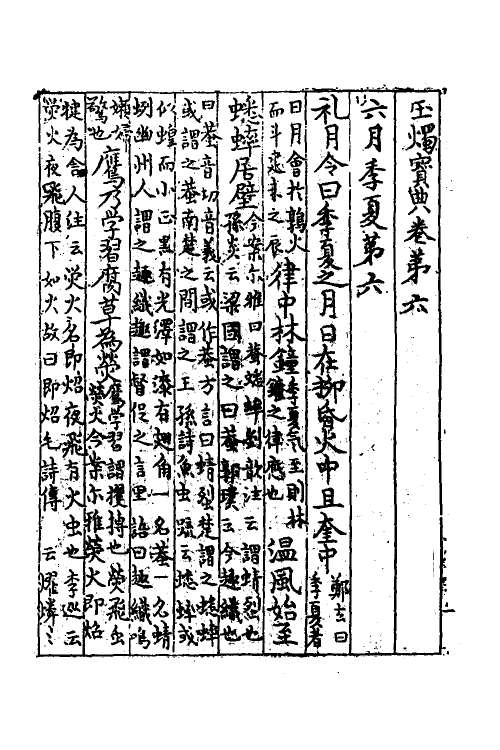 玉燭寶典卷第六
六月季夏第六
礼月令曰季夏之月日在柳昏火中旦奎中 鄭玄曰季夏者
日月會於鶉火而斗建未之辰 律中林鐘 季夏氣至則林鐘之律應也 温風始至
蟋蟀居壁 今案尓雅曰蟋蟀蛬劉歆注云謂蜻蛚也孫炎云梁國謂之曰蛬郭璞云今趣織也
曰蛬音切音義云或作蛬方言曰蜻蛚楚謂之蟋蟀或謂之蛬南楚之間謂之王孫詩魚虫疏云蟋蟀或
似蝗而小正黒有光澤如漆有翅角一名蛬一名蜻蛚幽州人謂之趣織趣謂督促之言里語曰趣織鳴
嬾婦驚也 鷹乃学習腐草為熒 鷹学習謂攫搏也熒飛虫熒火今案尓雅熒火即炤
犍為舍人注云熒火名即炤夜飛有火虫也李巡云熒火夜飛腹下如火故曰即炤毛詩傳云燿燐〻